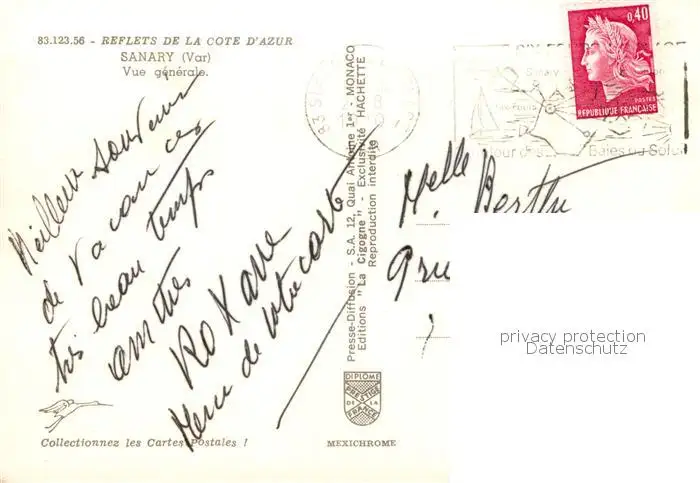 83.123.56 - REFLETS DE LA COTE D'AZUR
SANARY (Var)
Vue générale.
Meilleur souvenir
de vacances
très beau temps
amitiés
Roxane
Merci de votre carte
Collectionnez les Cartes Postales !
Presse-Diffusion - S.A. 12, Quai Antoine 1er - MONACO
Editions "La Cigogne" - Exclusivité HACHETTE
Reproduction interdite
DIPLOME
PRESTIGE
DE LA
FRANCE
MEXICHROME
0,40
POSTES
REPUBLIQUE FRANÇAISE
Sanary
Six-Fours
Baies du Soleil
Melle Berthe
privacy protection
Datenschutz